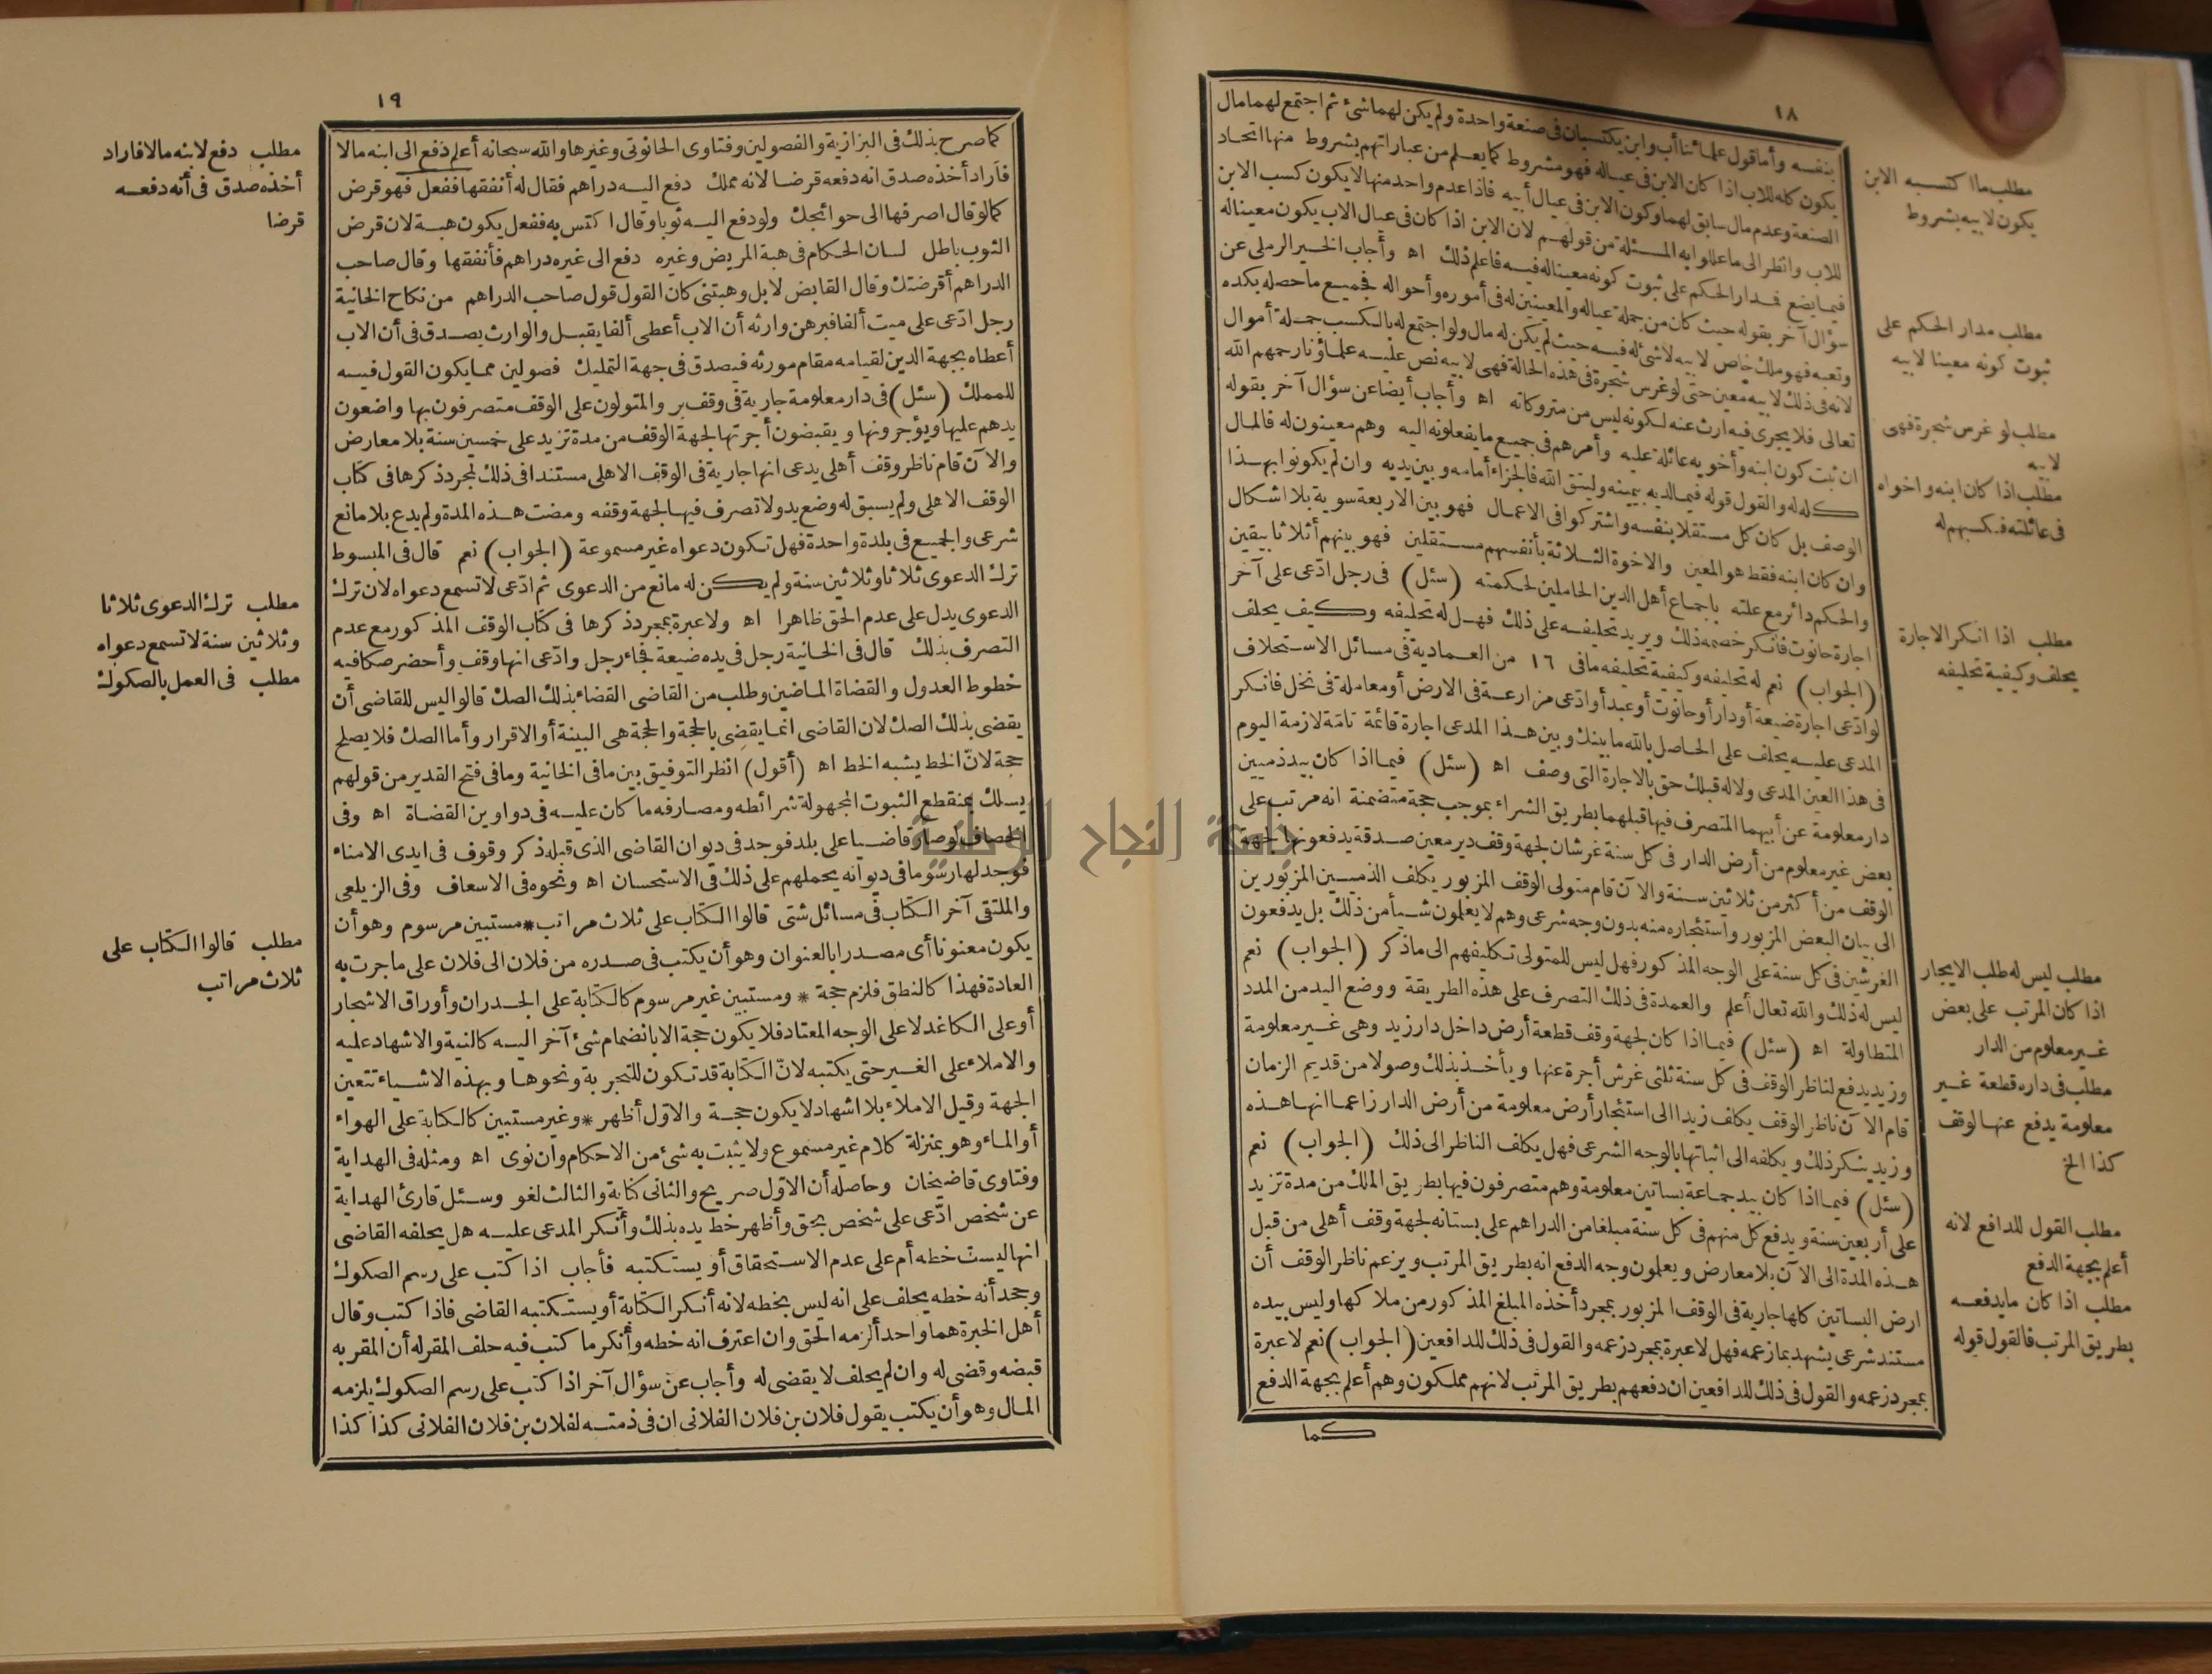 ١٨
بنفسه وأما قول علمائنا أب وابن يكتسبان فى صنعة واحدة ولم يكن لهما شئ ثم اجتمع لهما مال
يكون كله للاب اذا كان الابن فى عياله فهو مشروط كما يعلم من عباراتهم بشروط منها اتحاد
الصنعة وعدم مال سابق لهما وكون الابن فى عيال أبيه فاذا عدم واحد منها لا يكون كسب الابن
للاب وانظر الى ما عللوا به المسئلة من قولهم لان الابن اذا كان فى عيال الاب يكون معينا له
فيما يضع فمدار الحكم على ثبوت كونه معينا له فيه فاعلم ذلك اه وأجاب الخير الرملى عن
سؤال آخر بقوله حيث كان من جملة عياله والمعينين له فى أموره وأحواله فجميع ما حصله بكده
وتعبه فهو ملك خاص لابيه لا شئ له فيه حيث لم يكن له مال ولو اجتمع له بالكسب جملة أموال
لانه فى ذلك لابيه معين حتى لو غرس شجرة فى هذه الحالة فهى لابيه نص عليه علماؤنا رحمهم الله
تعالى فلا يجرى فيه ارث عنه لكونه ليس من متروكاته اه وأجاب أيضا عن سؤال آخر بقوله
ان ثبت كون ابنه وأخويه عائلة عليه وأمرهم فى جميع ما يفعلونه اليه وهم معينون له فالمال
كله له والقول قوله فيما لديه بيمينه وليتق الله فالجزاء أمامه وبين يديه وان لم يكونوا بهذا
الوصف بل كان كل مستقلا بنفسه واشتركوا فى الاعمال فهو بين الاربعة سوية بلا اشكال
وان كان ابنه فقط هو المعين والاخوة الثلاثة بأنفسهم مستقلين فهو بينهم أثلاثا بيقين
والحكم دائر مع علته باجماع أهل الدين الحاملين لحكمته (سئل) فى رجل ادّعى على آخر
اجارة حانوت فأنكر خصمه ذلك ويريد تحليفه على ذلك فهل له تحليفه وكيف يحلف
(الجواب) نعم له تحليفه وكيفية تحليفه ما فى ١٦ من العمادية فى مسائل الاستحلاف
لو ادّعى اجارة ضيعة أو دار أو حانوت أو عبد أو ادّعى مزارعة فى الارض أو معاملة فى نخل فانكر
المدعى عليه يحلف على الحاصل بالله ما بينك وبين هذا المدعى اجارة قائمة تامّة لازمة اليوم
فى هذا العين المدعى ولا له قبلك حق بالاجارة التى وصف اه (سئل) فيما اذا كان بيد ذميين
دار معلومة عن أبيهما المتصرف فيها قبلهما بطريق الشراء بموجب حجة متضمنة انه مرتب على
بعض غير معلوم من أرض الدار فى كل سنة غرشان لجهة وقف دير معين صدقة يدفعونها لجهة
الوقف من أكثر من ثلاثين سنة والآن قام متولى الوقف المزبور يكلف الذميين المزبورين
الى بيان البعض المزبور واستئجاره منه بدون وجه شرعى وهم لا يعلمون شيأ من ذلك بل يدفعون
الغرشين فى كل سنة على الوجه المذكور فهل ليس للمتولى تكليفهم الى ما ذكر (الجواب) نعم
ليس له ذلك والله تعالى أعلم والعمدة فى ذلك التصرف على هذه الطريقة ووضع اليد من المدد
المتطاولة اه (سئل) فيما اذا كان لجهة وقف قطعة أرض داخل دار زيد وهى غير معلومة
وزيد يدفع لناظر الوقف فى كل سنة ثلثى غرش أجرة عنها ويأخذ بذلك وصولا من قديم الزمان
قام الآن ناظر الوقف يكلف زيدا الى استئجار أرض معلومة من أرض الدار زاعما انها هذه
وزيد ينكر ذلك ويكلفه الى اثباتها بالوجه الشرعى فهل يكلف الناظر الى ذلك (الجواب) نعم
(سئل) فيما اذا كان بيد جماعة بساتين معلومة وهم متصرفون فيها بطريق الملك من مدة تزيد
على أربعين سنة ويدفع كل منهم فى كل سنة مبلغا من الدراهم على بستانه لجهة وقف أهلى من قبل
هذه المدة الى الآن بلا معارض ويعلمون وجه الدفع انه بطريق المرتب ويزعم ناظر الوقف أن
ارض البساتين كلها جارية فى الوقف المزبور بمجرد أخذه المبلغ المذكور من ملاكها وليس بيده
مستند شرعى يشهد بما زعمه فهل لا عبرة بمجرد زعمه والقول فى ذلك للدافعين (الجواب) نعم لا عبرة
بمجرد زعمه والقول فى ذلك للدافعين ان دفعهم بطريق المرتب لانهم مملكون وهم أعلم بجهة الدفع
كما
مطلب ما اكتسبه الابن
يكون لابيه بشروط
مطلب مدار الحكم على
ثبوت كونه معينا لابيه
مطلب لو غرس شجرة فهى
لابيه
مطلب اذا كان ابنه واخواه
فى عائلته فكسبهم له
مطلب اذا انكر الاجارة
يحلف وكيفية تحليفه
مطلب ليس له طلب الايجار
اذا كان المرتب على بعض
غير معلوم من الدار
مطلب فى داره قطعة غير
معلومة يدفع عنها لوقف
كذا الخ
مطلب القول للدافع لانه
أعلم بجهة الدفع
مطلب اذا كان ما يدفعه
بطريق المرتب فالقول قوله
١٩
كما صرح بذلك فى البزازية والفصولين وفتاوى الحانوتى وغيرها والله سبحانه أعلم دفع الى ابنه مالا
فأراد أخذه صدق انه دفعه قرضا لانه مملك دفع اليه دراهم فقال له أنفقها ففعل فهو قرض
كما لو قال اصرفها الى حوائجك ولو دفع اليه ثوبا وقال اكتس به ففعل يكون هبة لان قرض
الثوب باطل لسان الحكام فى هبة المريض وغيره دفع الى غيره دراهم فأنفقها وقال صاحب
الدراهم أقرضتك وقال القابض لا بل وهبتنى كان القول قول صاحب الدراهم من نكاح الخانية
رجل ادّعى على ميت ألفا فبرهن وارثه أن الاب أعطى ألفا يقبل والوارث يصدق فى أن الاب
أعطاه بجهة الدين لقيامه مقام مورثه فيصدق فى جهة التمليك فصولين مما يكون القول فيه
للمملك (سئل) فى دار معلومة جارية فى وقف بر والمتولون على الوقف متصرفون بها واضعون
يدهم عليها ويؤجرونها ويقبضون أجرتها لجهة الوقف من مدة تزيد على خمسين سنة بلا معارض
والآن قام ناظر وقف أهلى يدعى انها جارية فى الوقف الاهلى مستندا فى ذلك لمجرد ذكرها فى كتاب
الوقف الاهلى ولم يسبق له وضع يد ولا تصرف فيها لجهة وقفه ومضت هذه المدة ولم يدع بلا مانع
شرعى والجميع فى بلدة واحدة فهل تكون دعواه غير مسموعة (الجواب) نعم قال فى المبسوط
ترك الدعوى ثلاثا وثلاثين سنة ولم يكن له مانع من الدعوى ثم ادّعى لا تسمع دعواه لان ترك
الدعوى يدل على عدم الحق ظاهرا اه ولا عبرة بمجرد ذكرها فى كتاب الوقف المذكور مع عدم
التصرف بذلك قال فى الخانية رجل فى يده ضيعة فجاء رجل وادّعى انها وقف وأحضر صكا فيه
خطوط العدول والقضاة الماضين وطلب من القاضى القضاء بذلك الصك قالوا ليس للقاضى أن
يقضى بذلك الصك لان القاضى انما يقضى بالحجة والحجة هى البينة أو الاقرار وأما الصك فلا يصلح
حجة لانّ الخط يشبه الخط اه (أقول) انظر التوفيق بين ما فى الخانية وما فى فتح القدير من قولهم
يسلك بمنقطع الثبوت المجهولة شرائطه ومصارفه ما كان عليه فى دواوين القضاة اه وفى
الخصاف لو صار قاضيا على بلد فوجد فى ديوان القاضى الذى قبله ذكر وقوف فى ايدى الامناء
فوجد لها رسوما فى ديوانه يحملهم على ذلك فى الاستحسان اه ونحوه فى الاسعاف وفى الزيلعى
والملتقى آخر الكتاب فى مسائل شتى قالوا الكتاب على ثلاث مراتب * مستبين مرسوم وهو أن
يكون معنونا أى مصدرا بالعنوان وهو أن يكتب فى صدره من فلان الى فلان على ما جرت به
العادة فهذا كالنطق فلزم حجة * ومستبين غير مرسوم كالكتابة على الجدران وأوراق الاشجار
أو على الكاغد لا على الوجه المعتاد فلا يكون حجة الا بانضمام شئ آخر اليه كالنية والاشهاد عليه
والاملاء على الغير حتى يكتبه لانّ الكتابة قد تكون للتجربة ونحوها وبهذه الاشياء تتعين
الجهة وقيل الاملاء بلا اشهاد لا يكون حجة والاول أظهر * وغير مستبين كالكتابة على الهواء
أو الماء وهو بمنزلة كلام غير مسموع ولا يثبت به شئ من الاحكام وان نوى اه ومثله فى الهداية
وفتاوى قاضيخان وحاصله أن الاول صريح والثانى كناية والثالث لغو وسئل قارئ الهداية
عن شخص ادّعى على شخص بحق وأظهر خط يده بذلك وأنكر المدعى عليه هل يحلفه القاضى
انها ليست خطه أم على عدم الاستحقاق أو يستكتبه فأجاب اذا كتب على رسم الصكوك
وجحد أنه خطه يحلف على انه ليس بخطه لانه أنكر الكتابة أو يستكتبه القاضى فاذا كتب وقال
أهل الخبرة هما واحد ألزمه الحق وان اعترف انه خطه وأنكر ما كتب فيه حلف المقر له أن المقر به
قبضه وقضى له وان لم يحلف لا يقضى له وأجاب عن سؤال آخر اذا كتب على رسم الصكوك يلزمه
المال وهو أن يكتب يقول فلان بن فلان الفلانى ان فى ذمته لفلان بن فلان الفلانى كذا كذا
مطلب دفع لابنه مالا فاراد
أخذه صدق فى أنه دفعه
قرضا
مطلب ترك الدعوى ثلاثا
وثلاثين سنة لا تسمع دعواه
مطلب فى العمل بالصكوك
مطلب قالوا الكتاب على
ثلاث مراتب
جامعة النجاح الوطنية